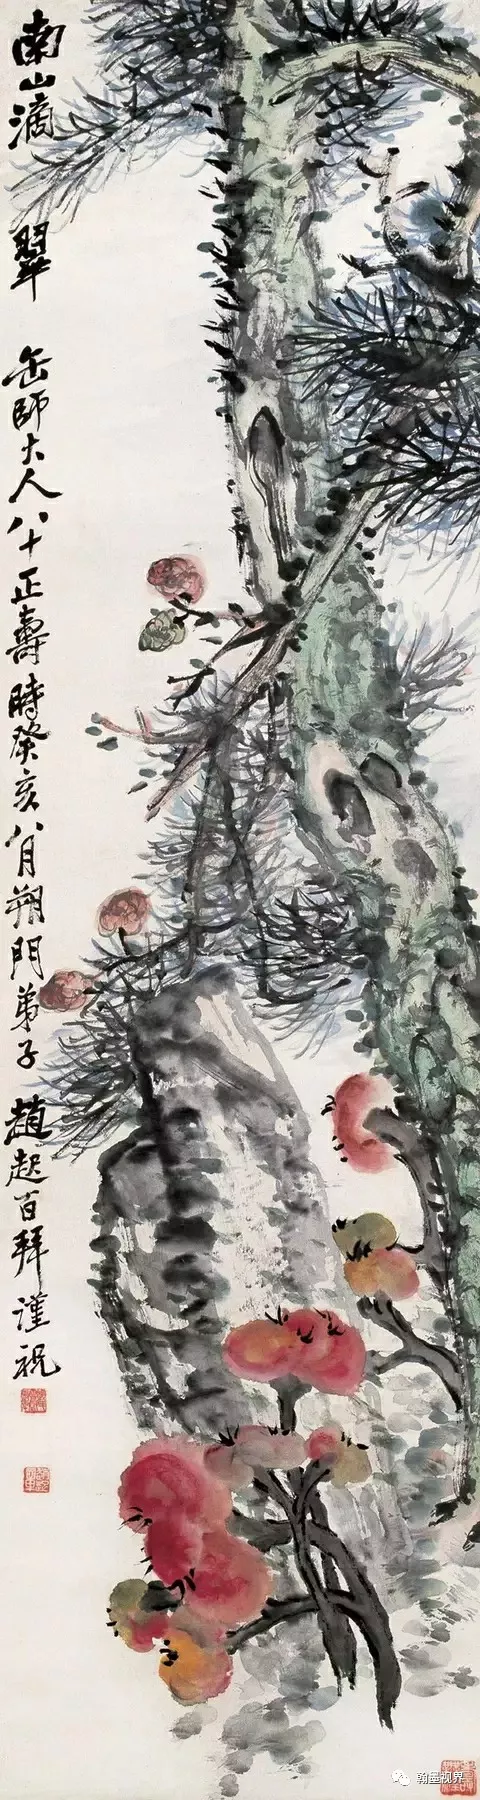 南山滴翠
缶師大人八十正壽時癸亥八月朔門弟子趙起百拜謹祝
翰墨视界